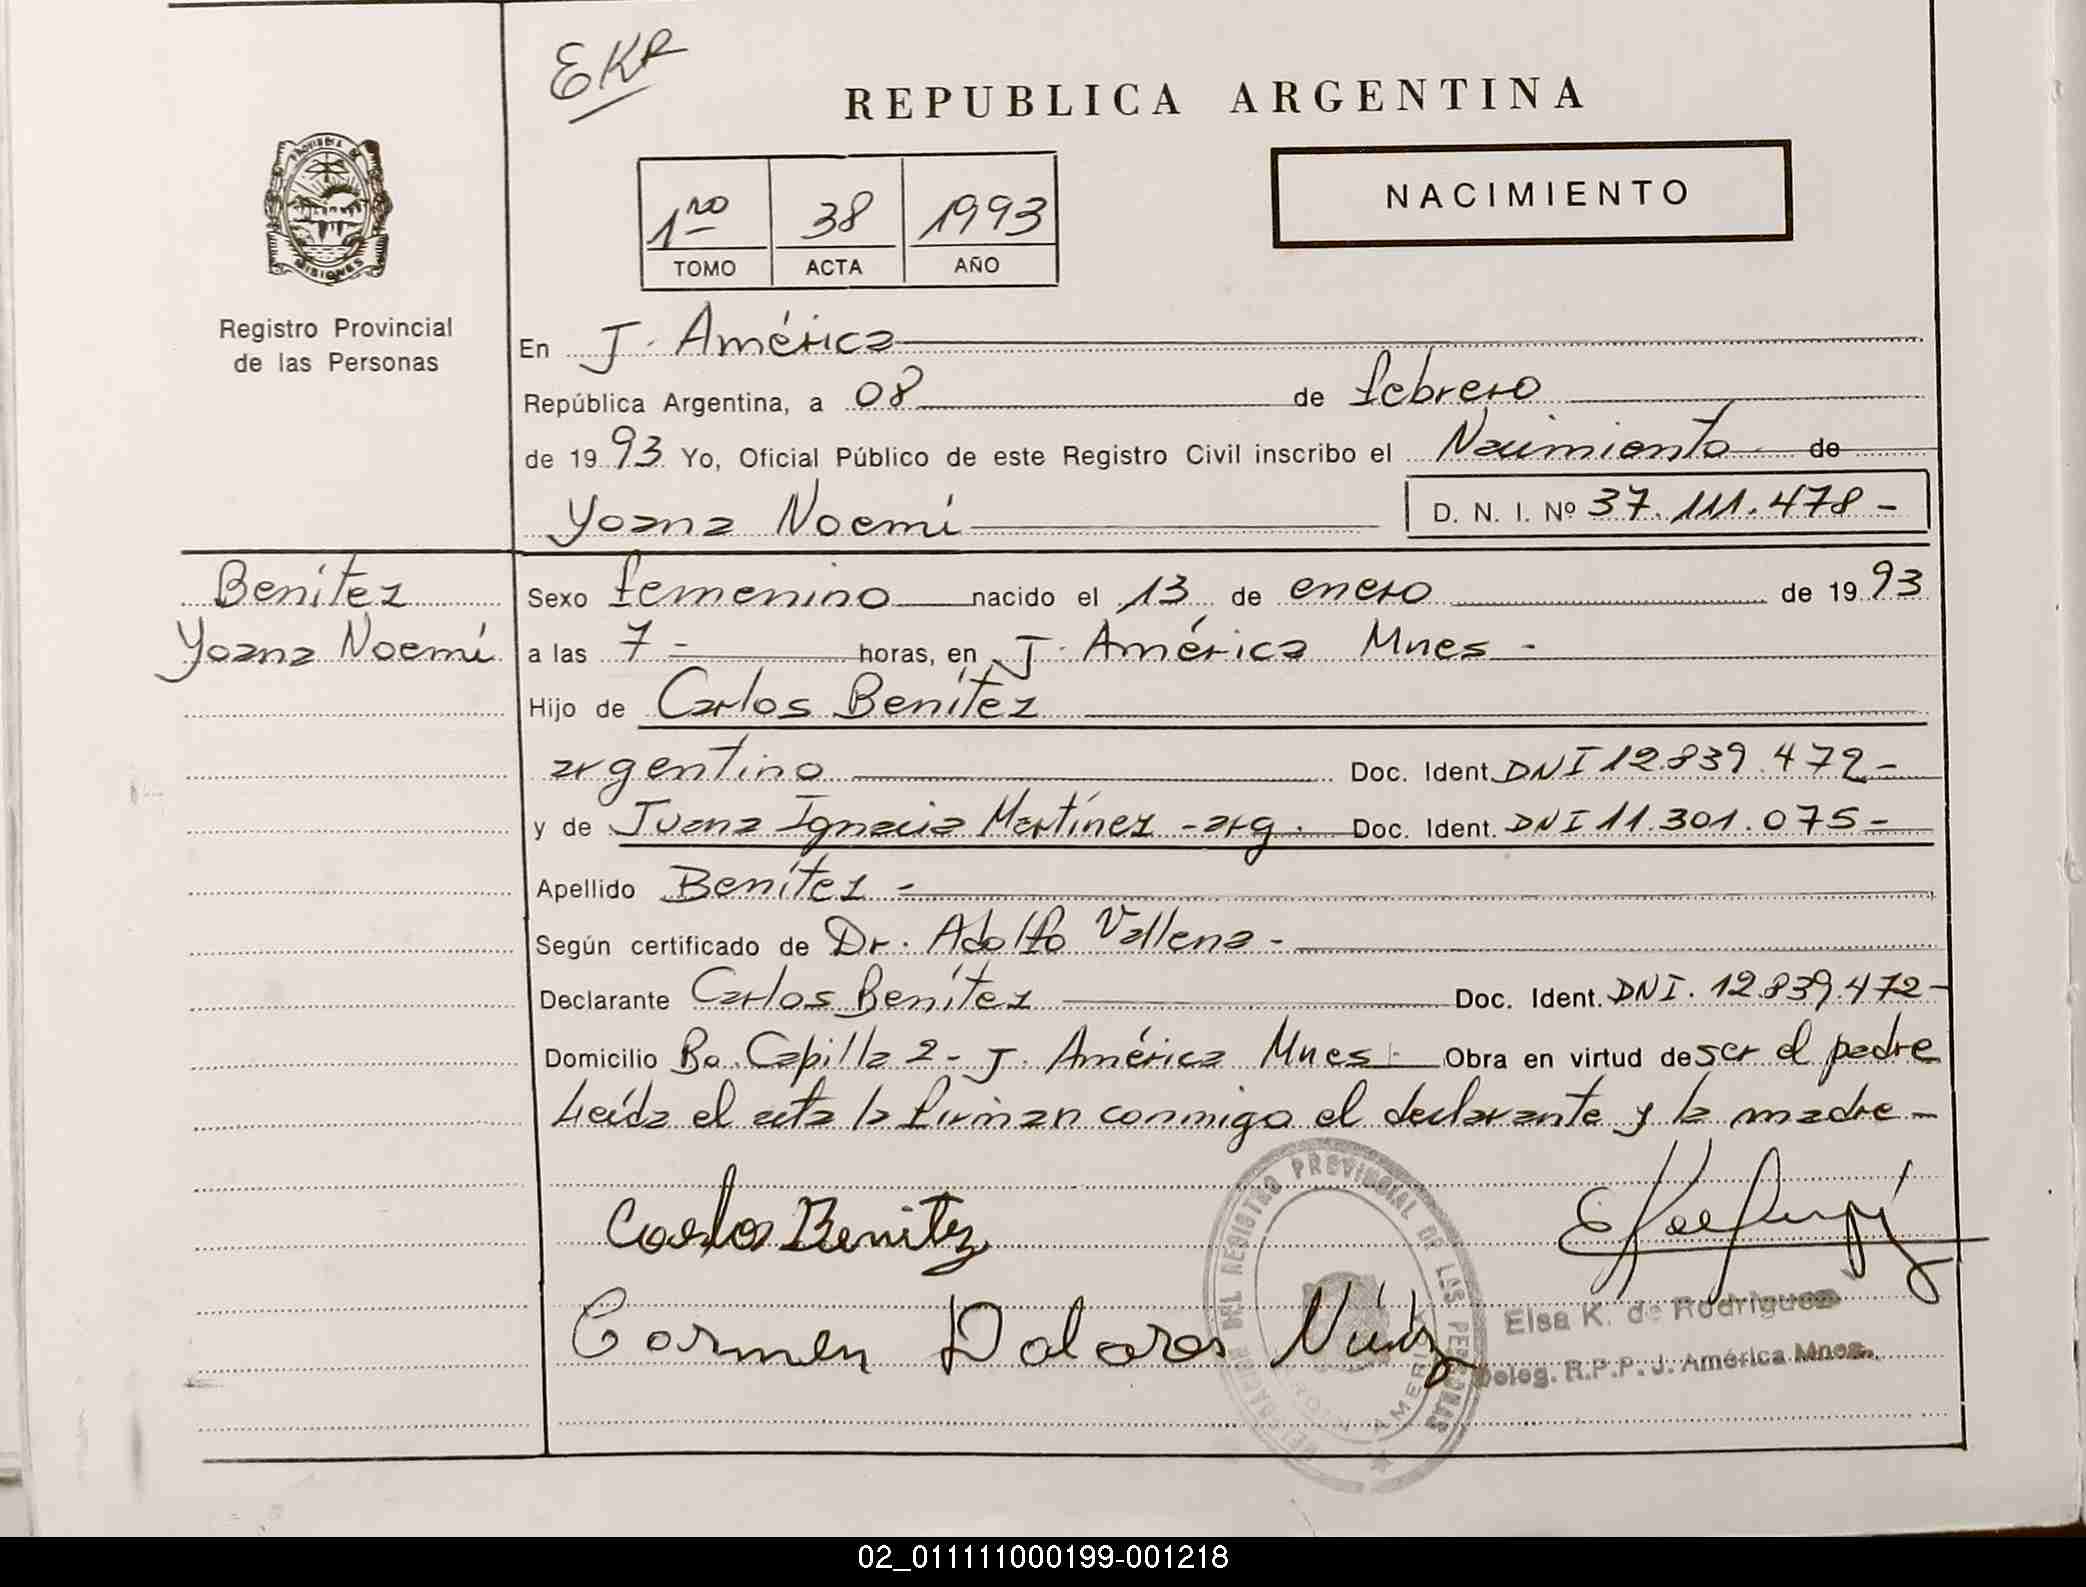 EKR
REPUBLICA ARGENTINA
PROVINCIA DE
MISIONES
1ro 38 1993
TOMO ACTA AÑO
NACIMIENTO
Registro Provincial
de las Personas
En J. América
República Argentina, a 08 de febrero
de 19 93 Yo, Oficial Público de este Registro Civil inscribo el Nacimiento de
Yoana Noemí D. N. I. Nº 37.111.478-
Benítez
Yoana Noemí
Sexo femenino nacido el 13 de enero de 19 93
a las 7 - horas, en J. América Mnes -
Hijo de Carlos Benítez
argentino Doc. Ident. DNI 12.839.472-
y de Juana Ignacia Martínez - arg. Doc. Ident. DNI 11.301.075-
Apellido Benítez -
Según certificado de Dr. Adolfo Vallena -
Declarante Carlos Benítez Doc. Ident. DNI. 12.839.472-
Domicilio Bo. Capilla 2 - J. América Mnes. Obra en virtud de ser el padre
Leída el acta la firman conmigo el declarante y la madre -
Carlos Benitez
Carmen Dolores Núñez
DEL REGISTRO PROVINCIAL DE LAS PERSONAS
Elsa K. de Rodriguez
Deleg. R.P.P. J. América Mnes.
02_011111000199-001218